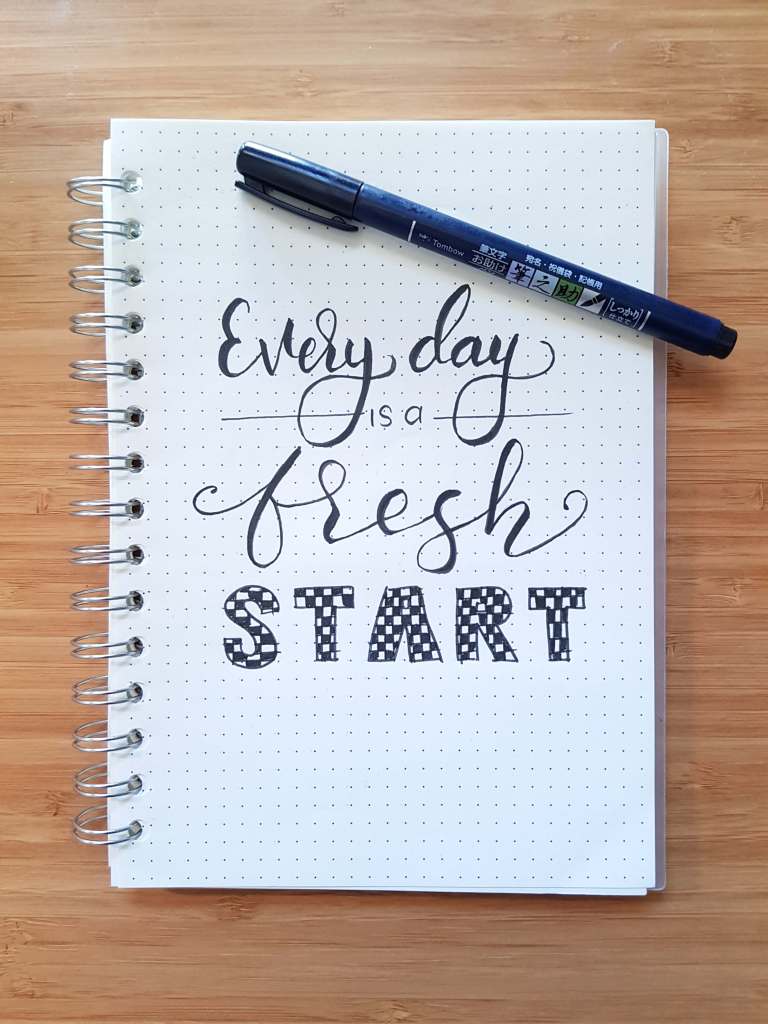 Tombow
筆文字 宛名・祝儀袋・記帳用
お助け 筆之助 [しっかり]
仕立て
Every day
is a
fresh
START